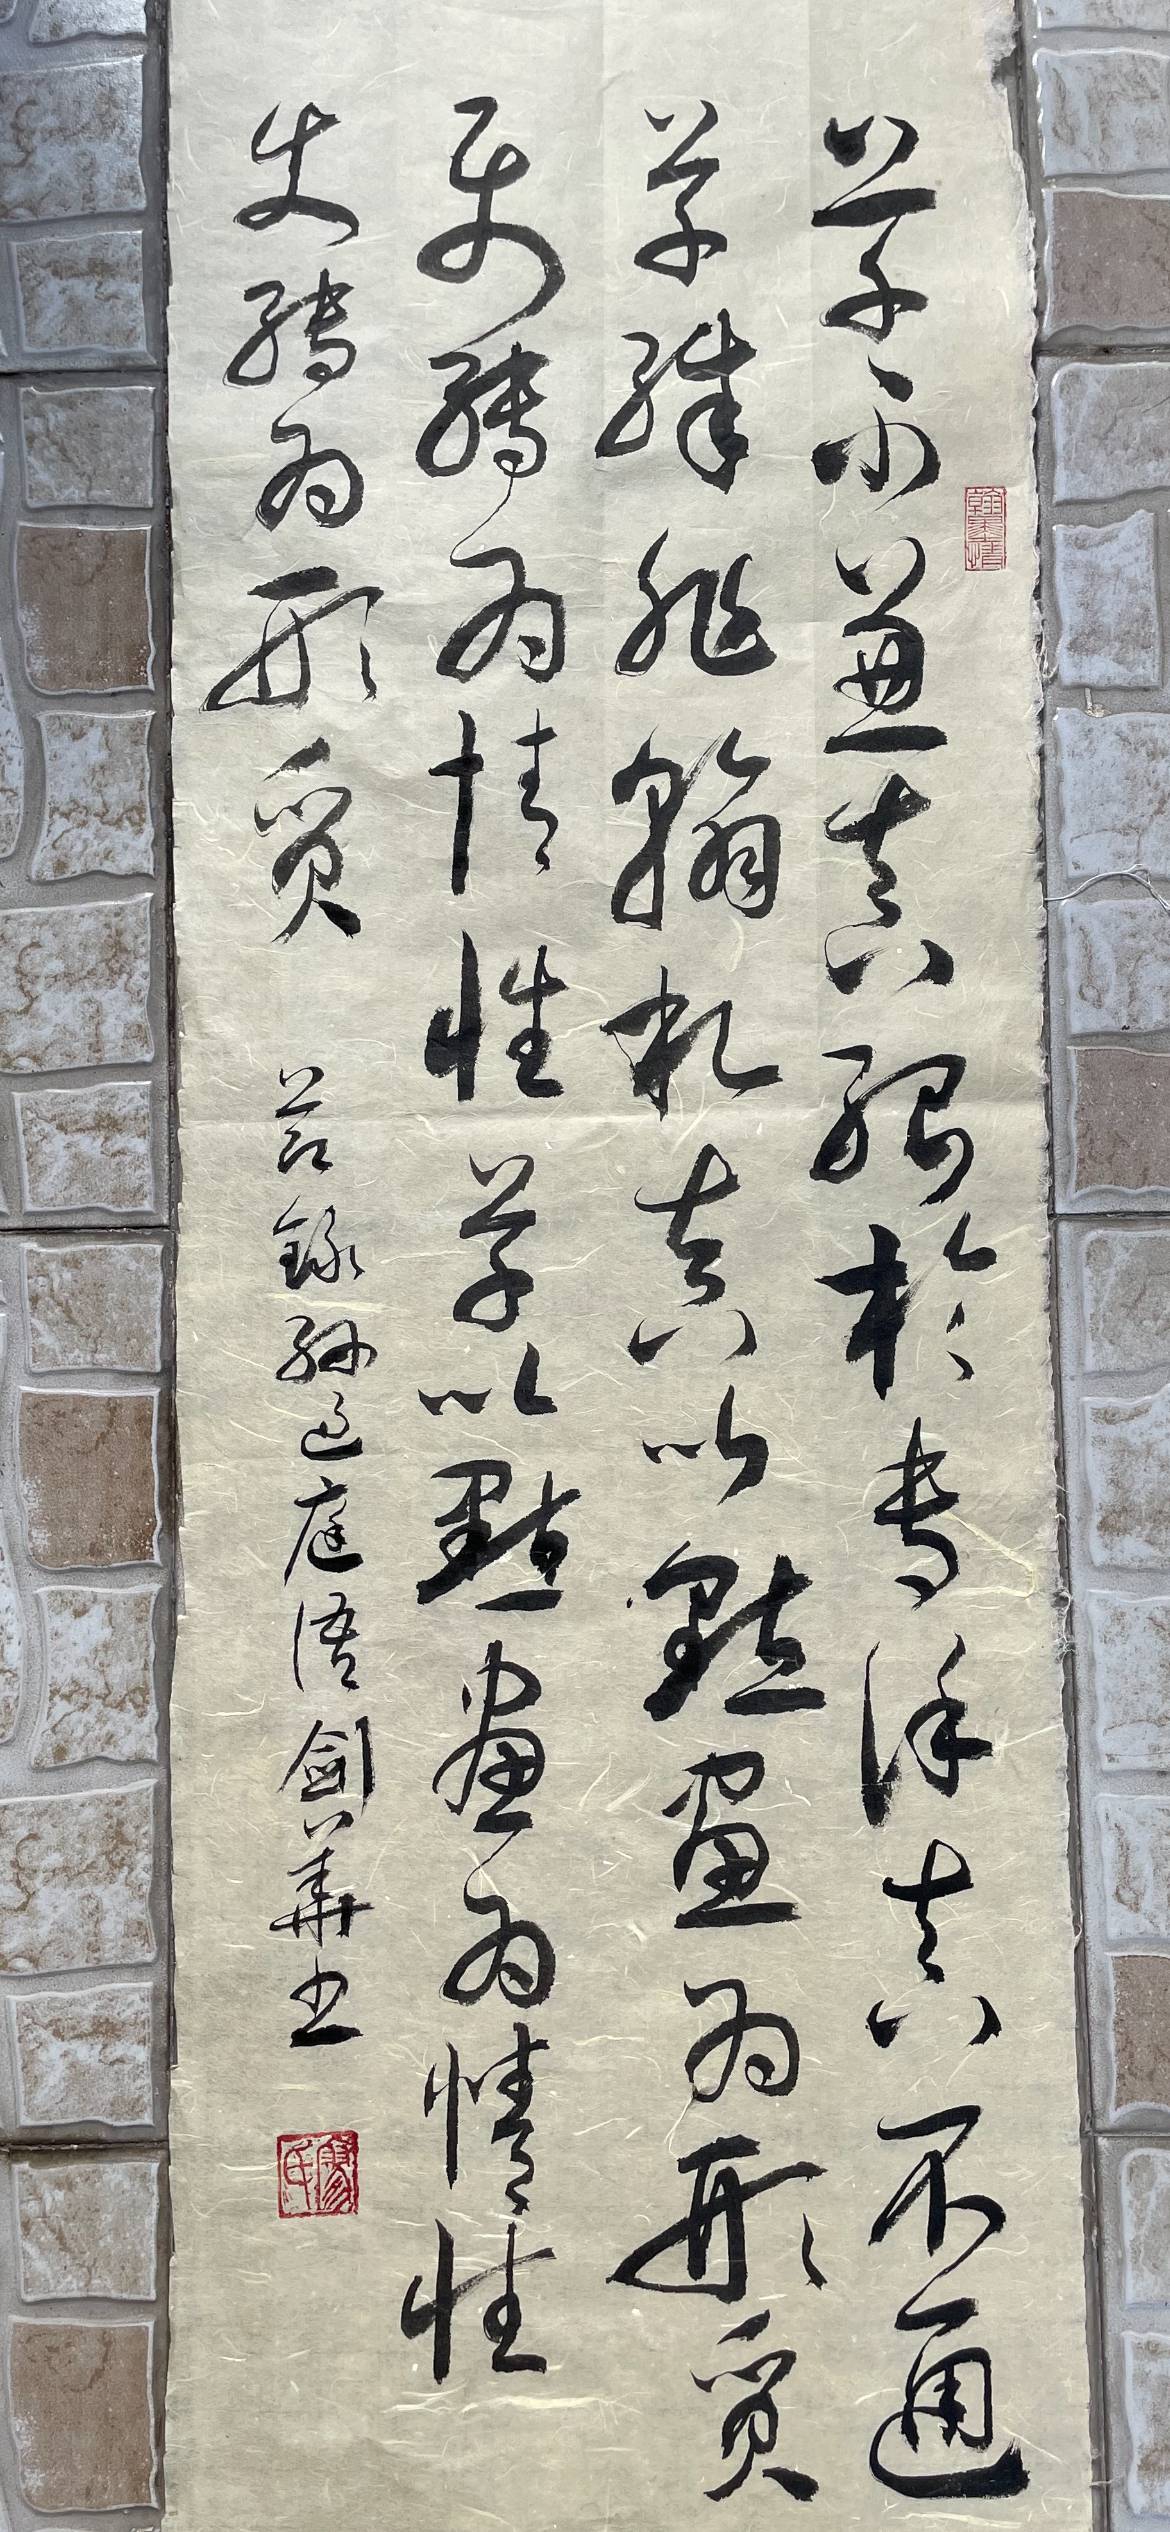 翰墨情
草不兼真殆於專謹真不通
草殊非翰札真以點畫為形質
使轉為情性草以點畫為情性
使轉為形質 節錄孫過庭語劍華書
廖氏